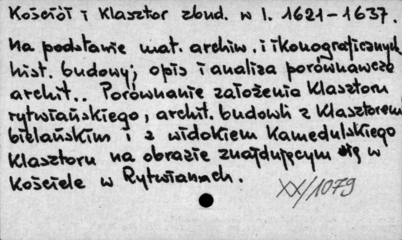 Kościół i Klasztor zbud. w l. 1621–1637.
Na podstawie mat. archiw. i ikonograficznych
hist. budowy; opis i analiza porównawcza
archit.. Porównanie założenia Klasztoru
rytwiańskiego, archit. budowli z Klasztorem
bielańskim i z widokiem Kamedulskiego
Klasztoru na obrazie znajdującym się w
Kościele w Rytwianach.
XX/1079